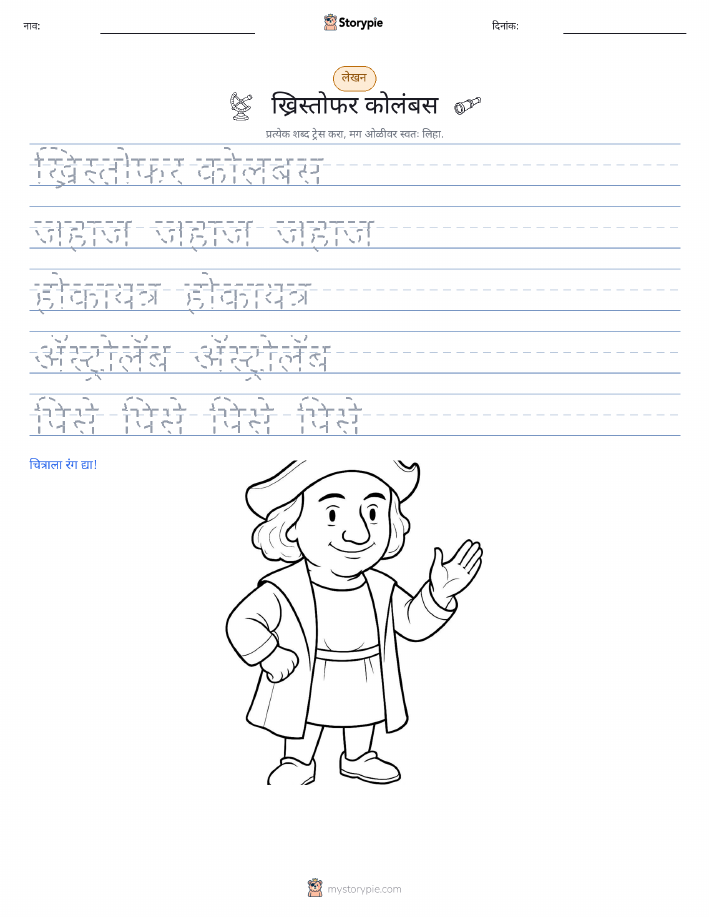 नाव:
Storypie
दिनांक:
लेखन
ख्रिस्तोफर कोलंबस
प्रत्येक शब्द ट्रेस करा, मग ओळीवर स्वतः लिहा.
ख्रिस्तोफर कोलबस
जहाज जहाज जहाज
होकायत्र होकायत्र
ॲस्ट्रोलॅब ॲस्ट्रोलॅब
पिसे पिसे पिसे पिसे
चित्राला रंग द्या!
mystorypie.com